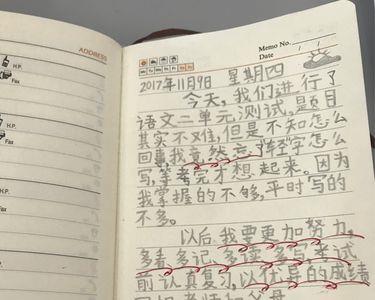 ADDRESS
H.P.
Fax
H.P.
Fax
H.P.
Fax
H.P.
Memo No.
Date / /
Mo Tu We Th Fr Sa Su
2017年11月9日 星期四
今天,我们进行了
语文二单元测试,题目
其实不难,但是不知怎么
回事,我竟然忘了转字怎么
写,等考完才想起来。因为
我掌握的不够,平时写的
不多。
以后我要更加努力,
多看、多记、多读、多写,考试
前认真复习,以优异的成绩
老师和父母